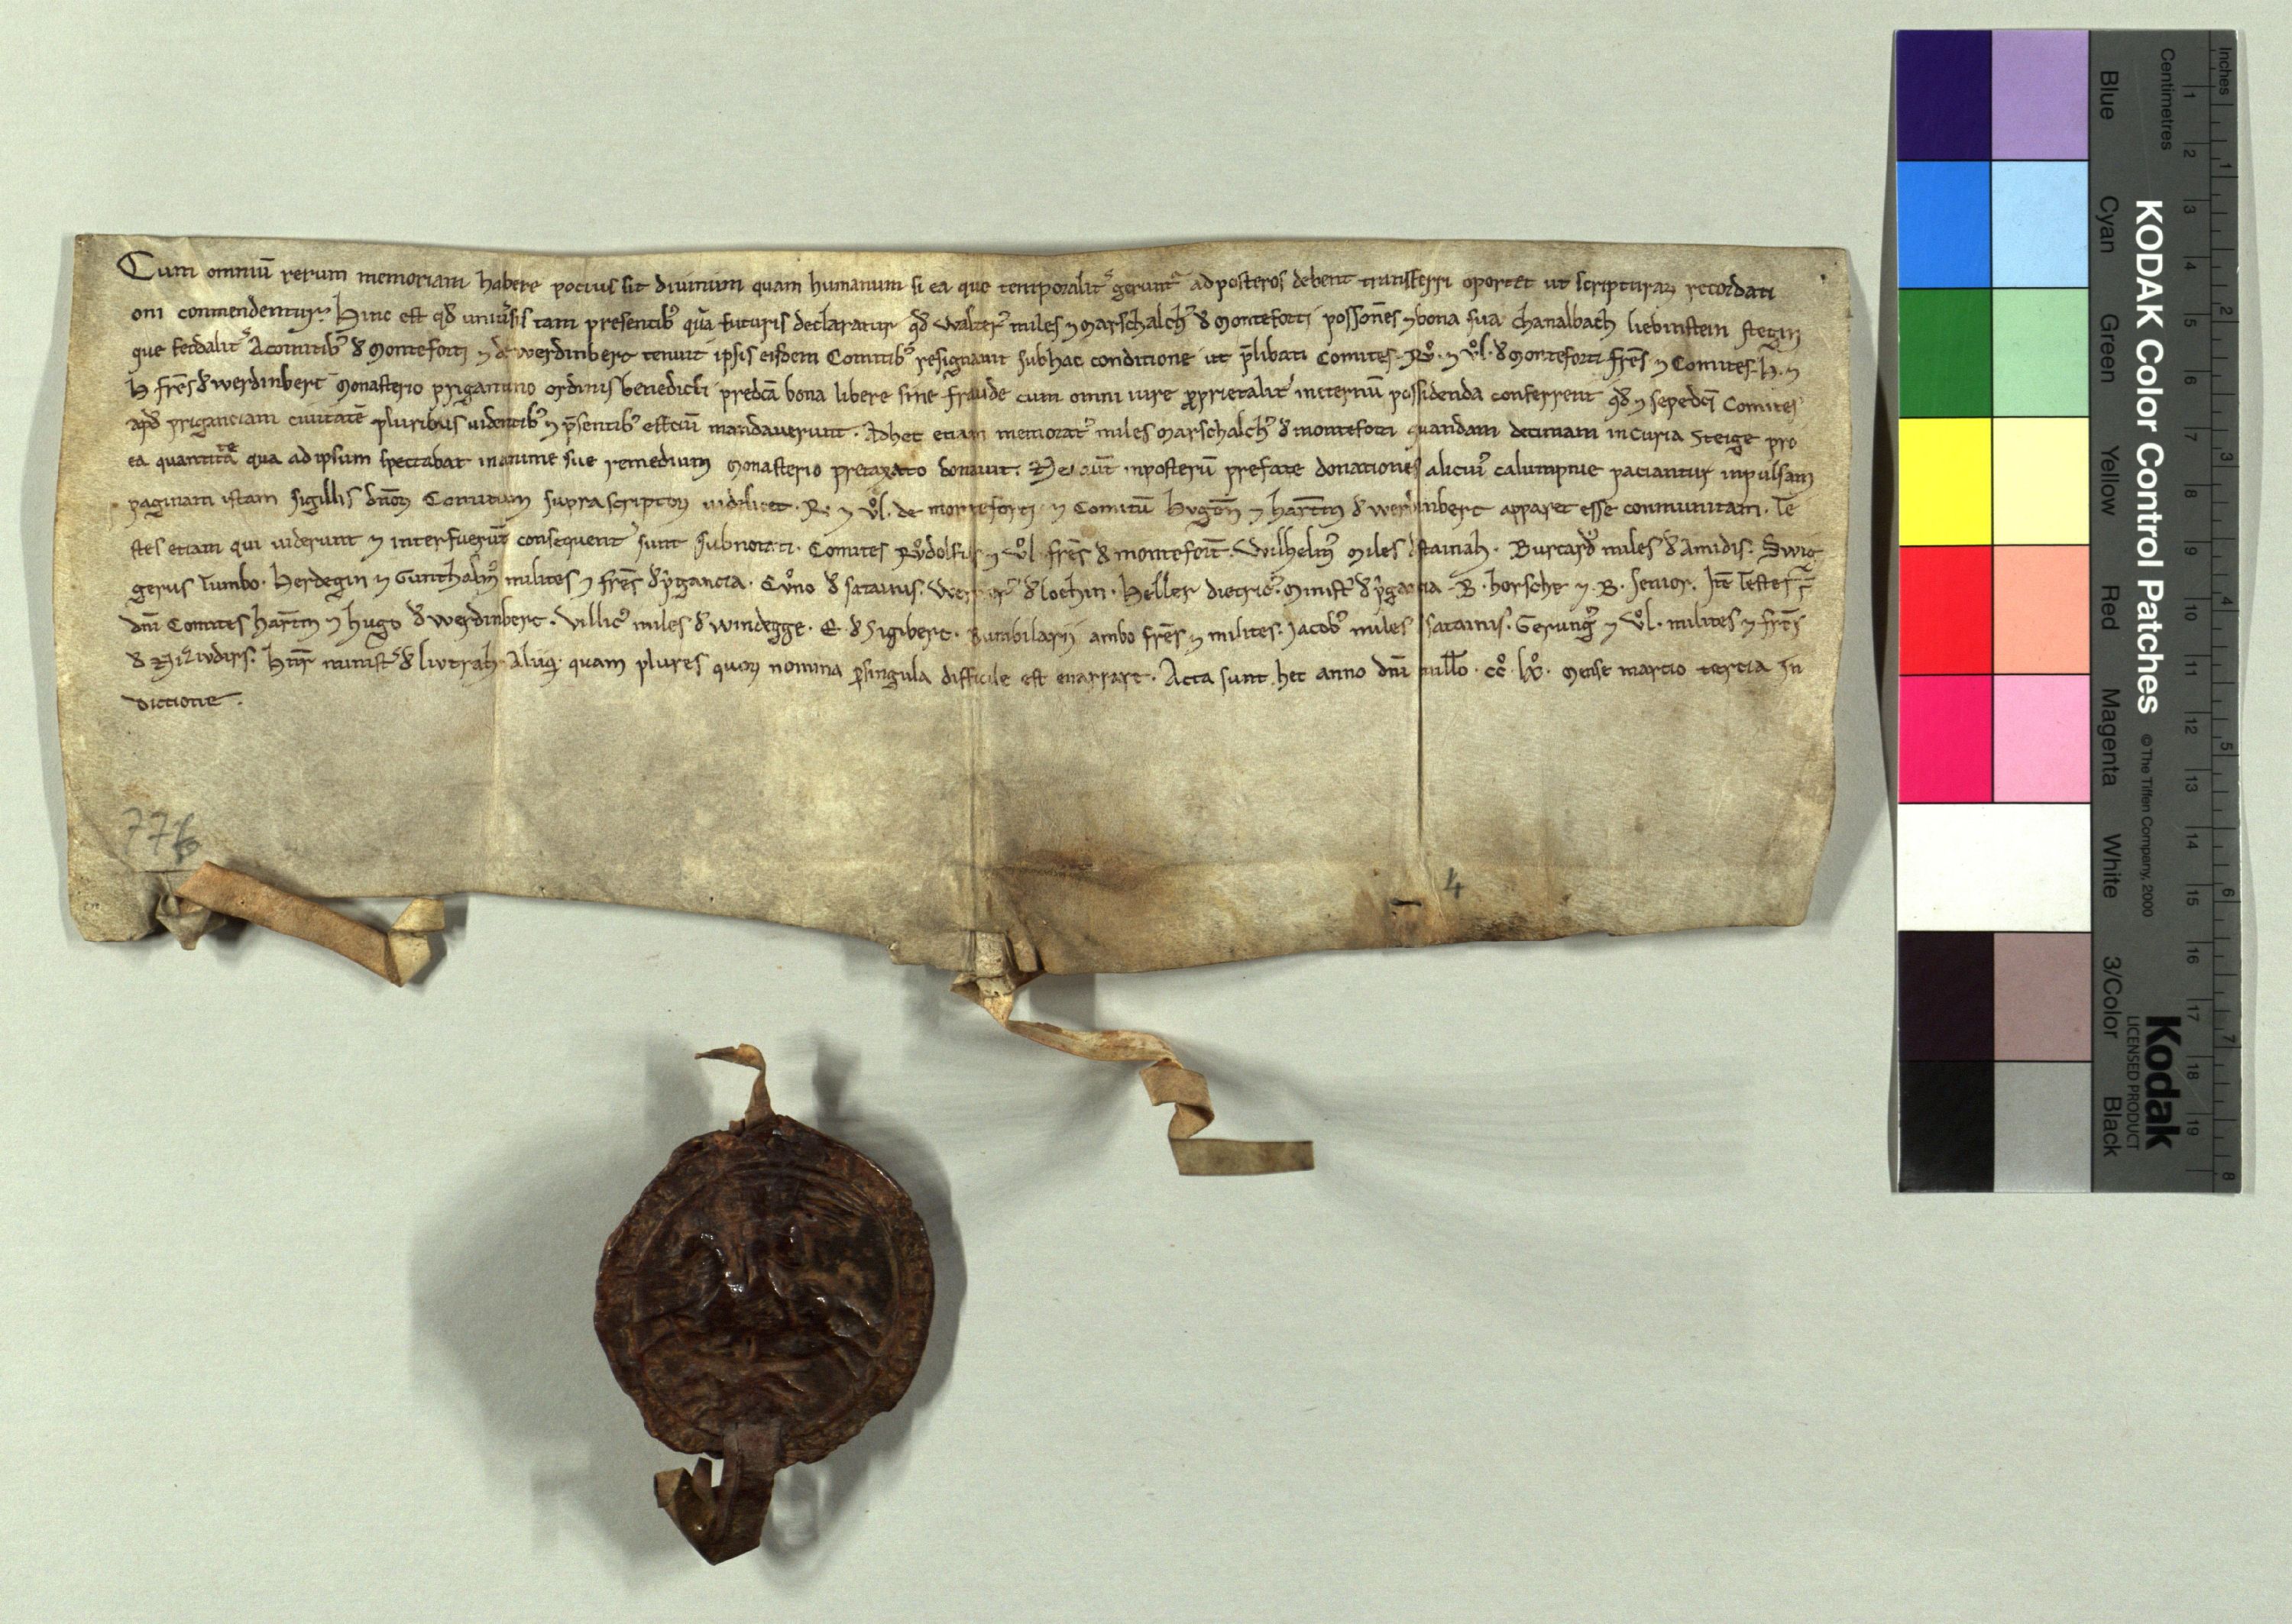 Cum omniū rerum memoriam habere pocius sit divinum quam humanum si ea que temporalit᷎ gerunt᷎ ad posteros debent transferri oportet ut scripturaꝝ recordati
oni conmendentur. Hinc est qd̄ univ̄sis tam presentib᷒ quā futuris declaratur qd̄ Walter᷒ miles ⁊ marschalch᷒ d̄ Monteforti possōnes ⁊ bona sua chanalbach liebinstein stegin
que feodalit᷎ A comitib᷒ d̄ Monteforti ⁊ de werdinberc tenuit ipsis eisdem Comitib᷒ resignavit sub hac conditione ut p̄libati Comites. Rv̊. ⁊ v̊l. d̄ Monteforti fr̄es ⁊ Comites. H. ⁊
H fr̄es d̄ werdinberc Monasterio prigantino ordinis benedicti predc̄a bona libere sine fraude cum omni iure proprietalit᷎ in eternū possidenda conferrent qd̄ ⁊ sepedc̄i Comites
apd̄ priganciam civitatē pluribus videntib᷒ ⁊ p̄sentib᷒ effectū mandaverunt. Adhec etiam memorat᷒ miles marschalch᷒ d̄ monteforti quandam decimam in curia Steige pro
ea quantitāte qua ad ipsum spectabat in anime sue remedium Monasterio pretaxato donavit. Ne aūt inposterū prefate donationes alicui᷒ calumpnie paciantur inpulsam
paginam istam sigillis dn̄oꝝ Comitum suprascriptoꝝ videlicet. R. ⁊ v̊l. de monteforti ⁊ Comitū Hugon̄ ⁊ hartm̄ d̄ werdinberc apparet esse conmunitam. Te
stes etiam qui viderunt ⁊ interfuerūt consequent᷎ sunt subnotati. Comites Rv̊dolfus ⁊ v̊l fr̄es d̄ montefort̄. Wilhelm᷒ miles d̄ stainah. Burcard᷒ miles d̄ Amidis. Swig
gerus Tumbo. Herdegin ⁊ Gunthalm᷒ milites ⁊ fr̄es d̄ p̄gancia. Cv̊no d̄ satainis. d̄ lochin. Heller dietric᷒. Minist᷎ d̄ p̄gancia. B. horsche ⁊. B. senior. Itē Testes s̄
dn̄i Comites hartm̄ ⁊ hugo d̄ werdinberc. Villic᷒ miles d̄ windegge. E. d̄ Sigiberc. ambo fr̄es ⁊ milites. Jacob᷒ miles satainis. Gerung᷒ ⁊ v̊l. milites ⁊ fr̄es
d̄ Hn̄r minist᷎ d̄ livtrah Aliiq᷒ quam plures quoꝝ nomina p̱ singula difficile est enarrare. Acta sunt hec anno dn̄i mill̄o. cc̊. lx̊. Mense marcio tercia In
dictione.
776
4
Inches
Centimetres
Blue Cyan Green Yellow Red Magenta White 3/Color Black
KODAK Color Control Patches
© The Tiffen Company, 2000
Kodak
LICENSED PRODUCT
1 2 3 4 5 6 7 8 9 10 11 12 13 14 15 16 17 18 19
1 2 3 4 5 6 7 8